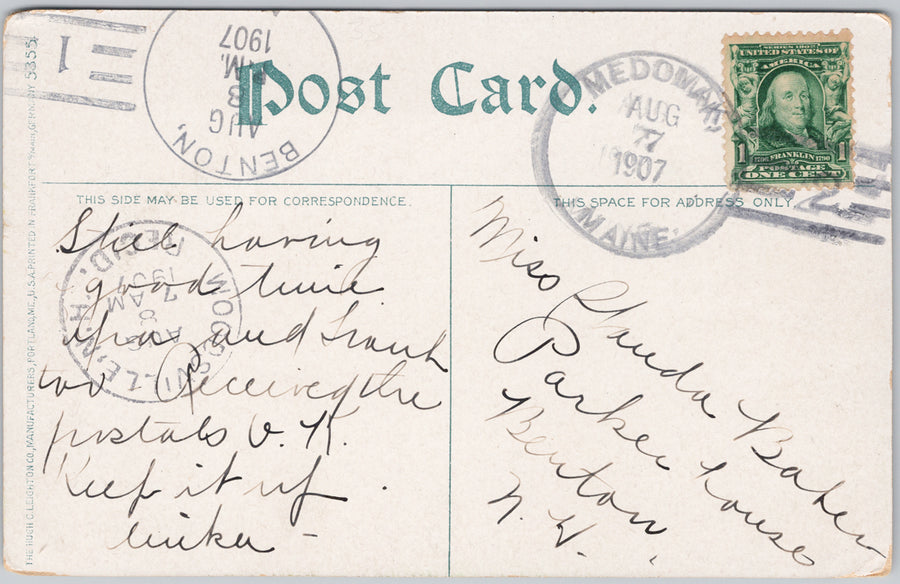 Post Card.
THIS SIDE MAY BE USED FOR CORRESPONDENCE.
THIS SPACE FOR ADDRESS ONLY.
Still having
good time
and
too Received the
postals O. K.
Keep it up.
Miss Baker
Parker house
Benton,
N. H.
BENTON,
AUG
8
PM.
1907
1
MEDOMAK,
AUG
7
1907
MAINE.
2
SERIES 1902
UNITED STATES OF
AMERICA
1706 FRANKLIN 1790
POSTAGE
1 1
ONE CENT
REC'D.
7 AM
AUG
N.H.
THE HUGH C. LEIGHTON CO., MANUFACTURERS, PORTLAND, ME., U.S.A. PRINTED IN FRANKFORT O/MAIN, GERMANY 5355